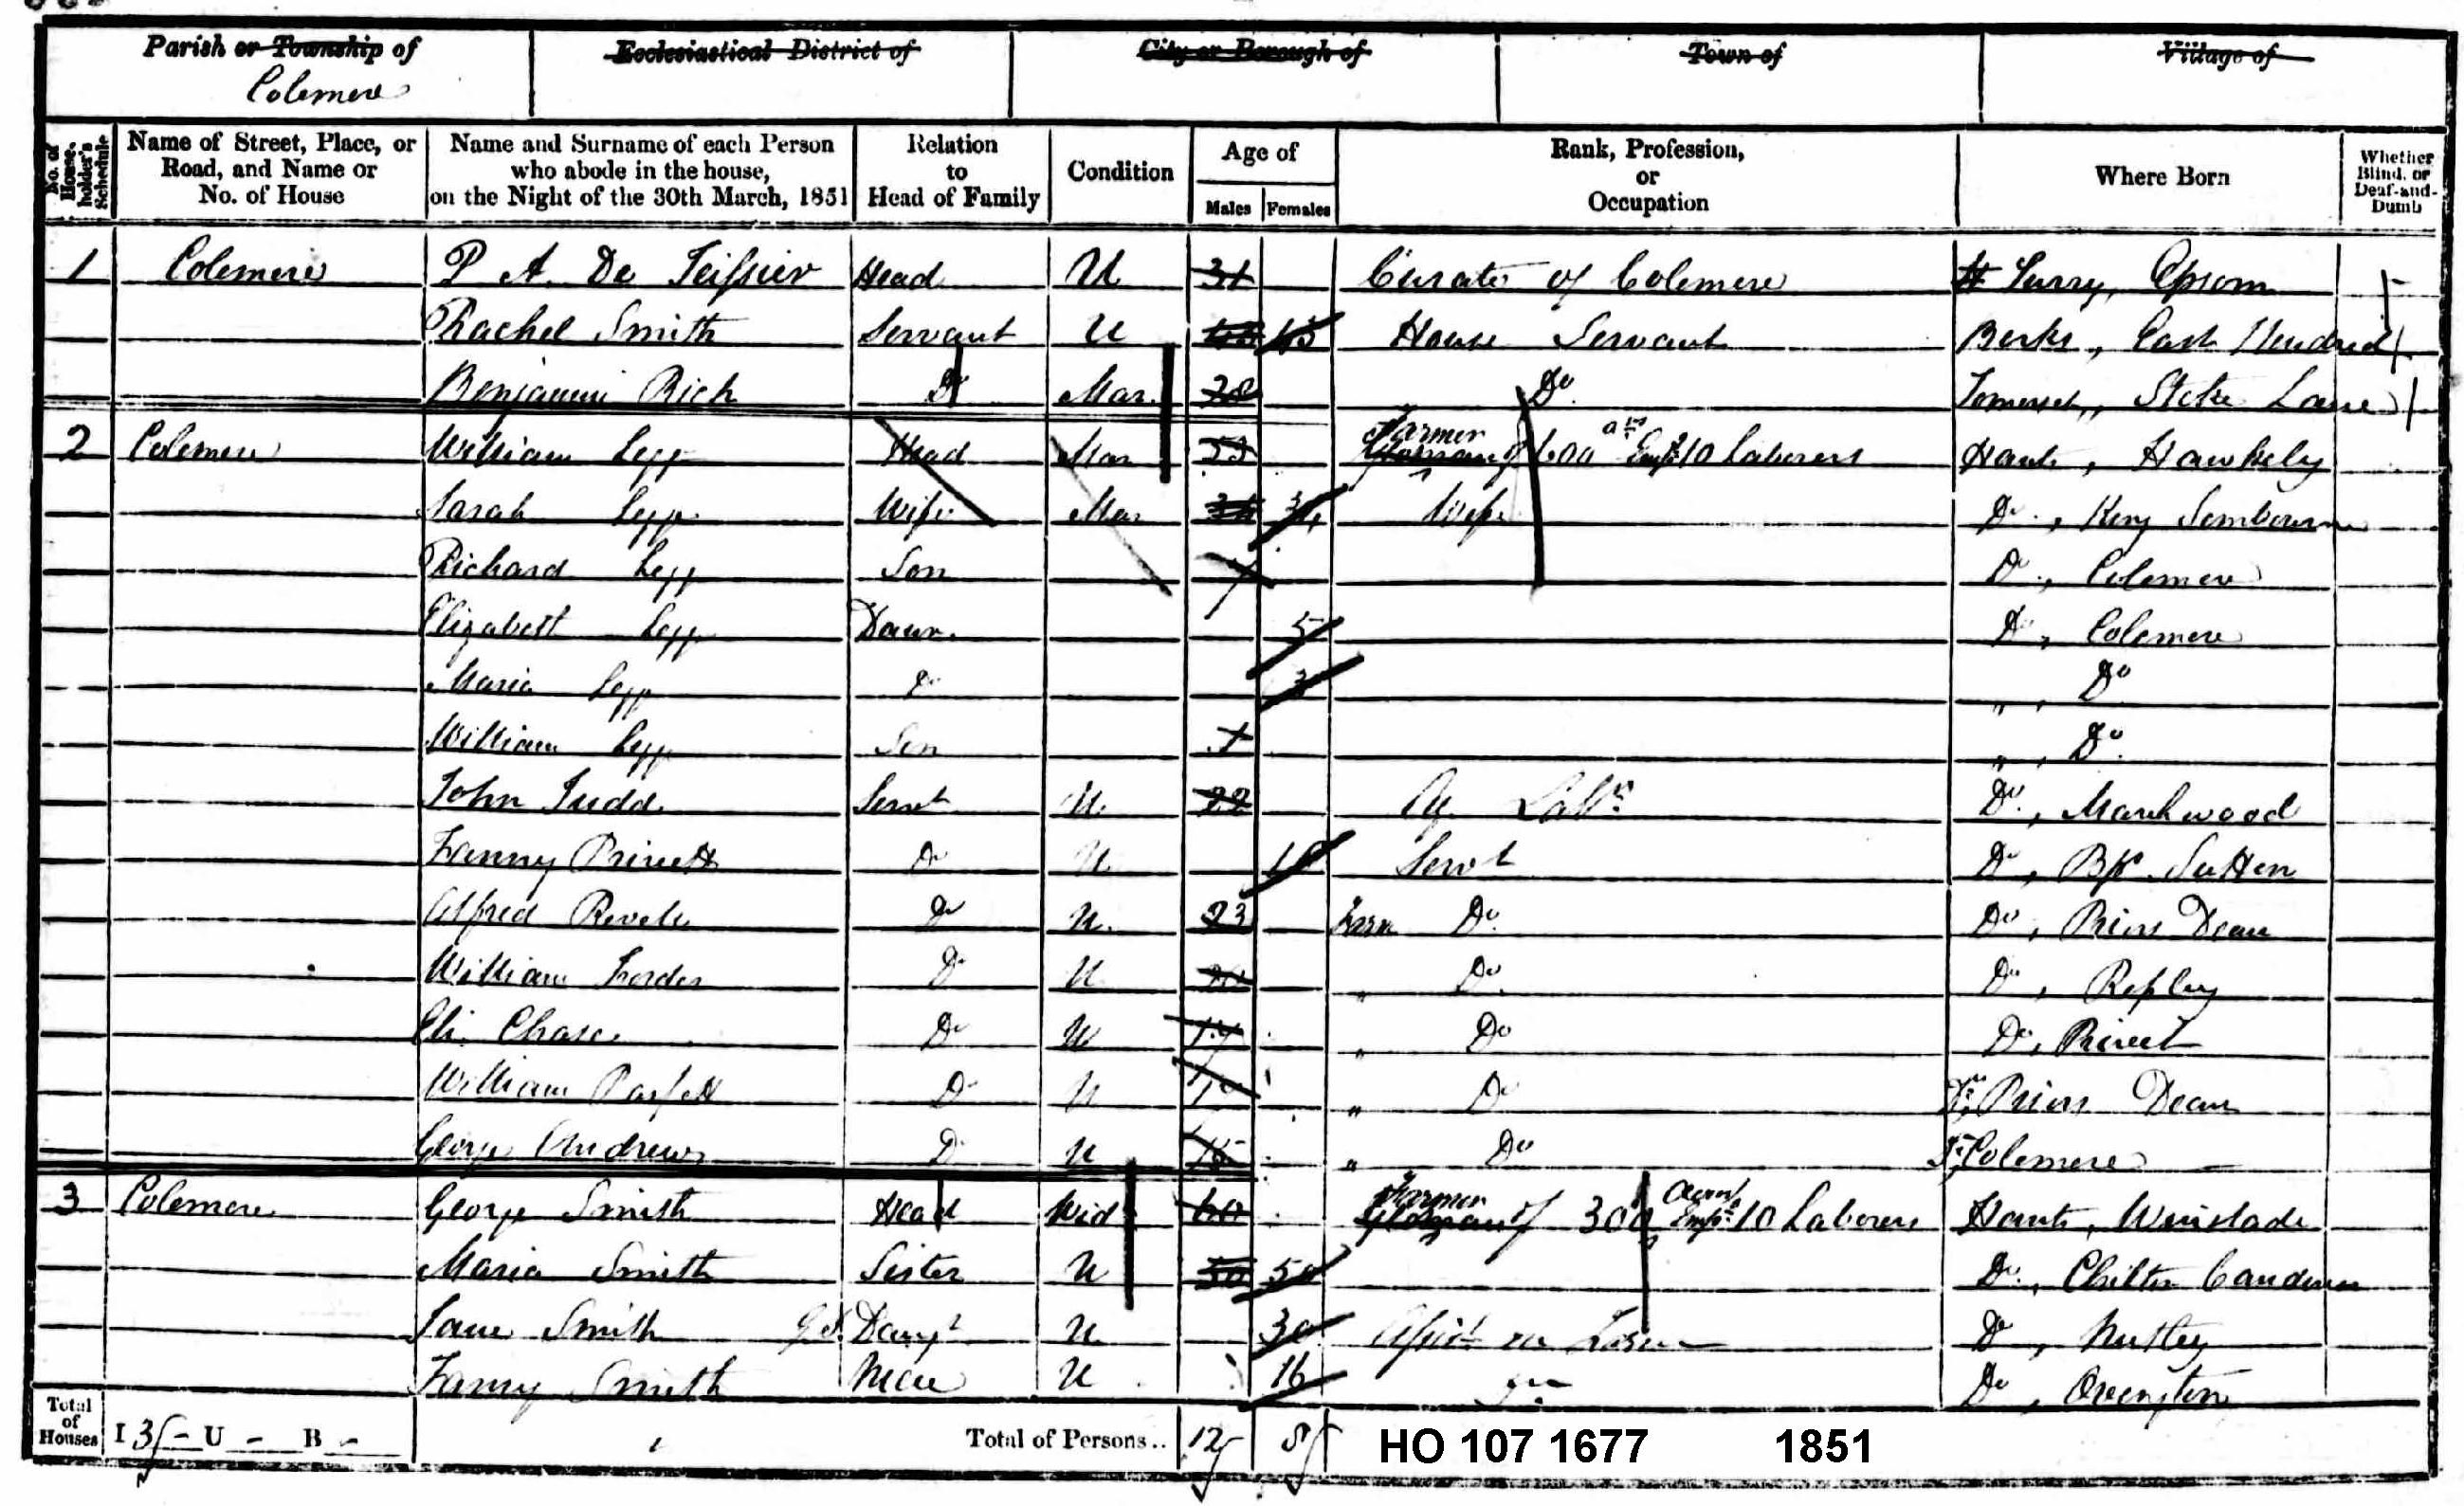 Parish or Township of
Colemere
Ecclesiastical District of
City or Borough of
Town of
Village of
No. of House-holder's Schedule
Name of Street, Place, or Road, and Name or No. of House
Name and Surname of each Person who abode in the house, on the Night of the 30th March, 1851
Relation to Head of Family
Condition
Age of
Males Females
Rank, Profession, or Occupation
Where Born
Whether Blind, or Deaf-and-Dumb
1 Colemere P A De Teissier Head U 31 Curate of Colemere Surry, Epsom
Rachel Smith Servant U 45 House Servant Berks, East Hendred
Benjamin Rich Do Mar. 28 Do. Somerset, Stoke Lane
2 Colemere William Legg Head Mar 53 Farmer of 600 Emp 10 Laborers Hants, Hawkely
Sarah Legg Wife Mar 34 Wife Do., King Sombourn
Richard Legg Son 7 Do., Colemere
Elizabeth Legg Daur. 5 Do, Colemere
Maria Legg Do 3 „ , Do
William Legg Son 1 „ , Do.
John Judd Servt U. 22 Ag. Labr. Do., Marchwood
Fanny Privett Do U Servt Do, Bp. Sutton
Alfred Do U. 23 Farm Do. Do, Priors Dean
William Do U 20 „ Do. Do, Ropley
Eli Chase Do U 17 „ Do Do, Privett
William Parfett Do U „ Do Do, Priors Dean
George Andrews Do U 15 „ Do Do, Colemere
3 Colemere George Smith Head Wid 60 Farmer of 300 acres Emp. 10 Laborers Hants, Winslade
Maria Smith Sister U 50 Do., Chilton Candover
Jane Smith Daugt U 30 Assist on Farm Do, Nutley
Fanny Smith Niece U 16 Do. Do, Ovington
Total of Houses I 3 - U - B -
Total of Persons.. 12 8
HO 107 1677 1851